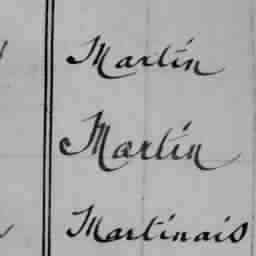 Martin
Martin
Martinais